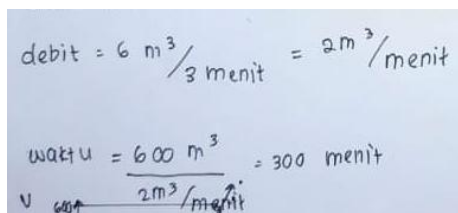 debit = 6 m³/3 menit = 2m³/menit
waktu = 600 m³ / 2m³/menit = 300 menit
V